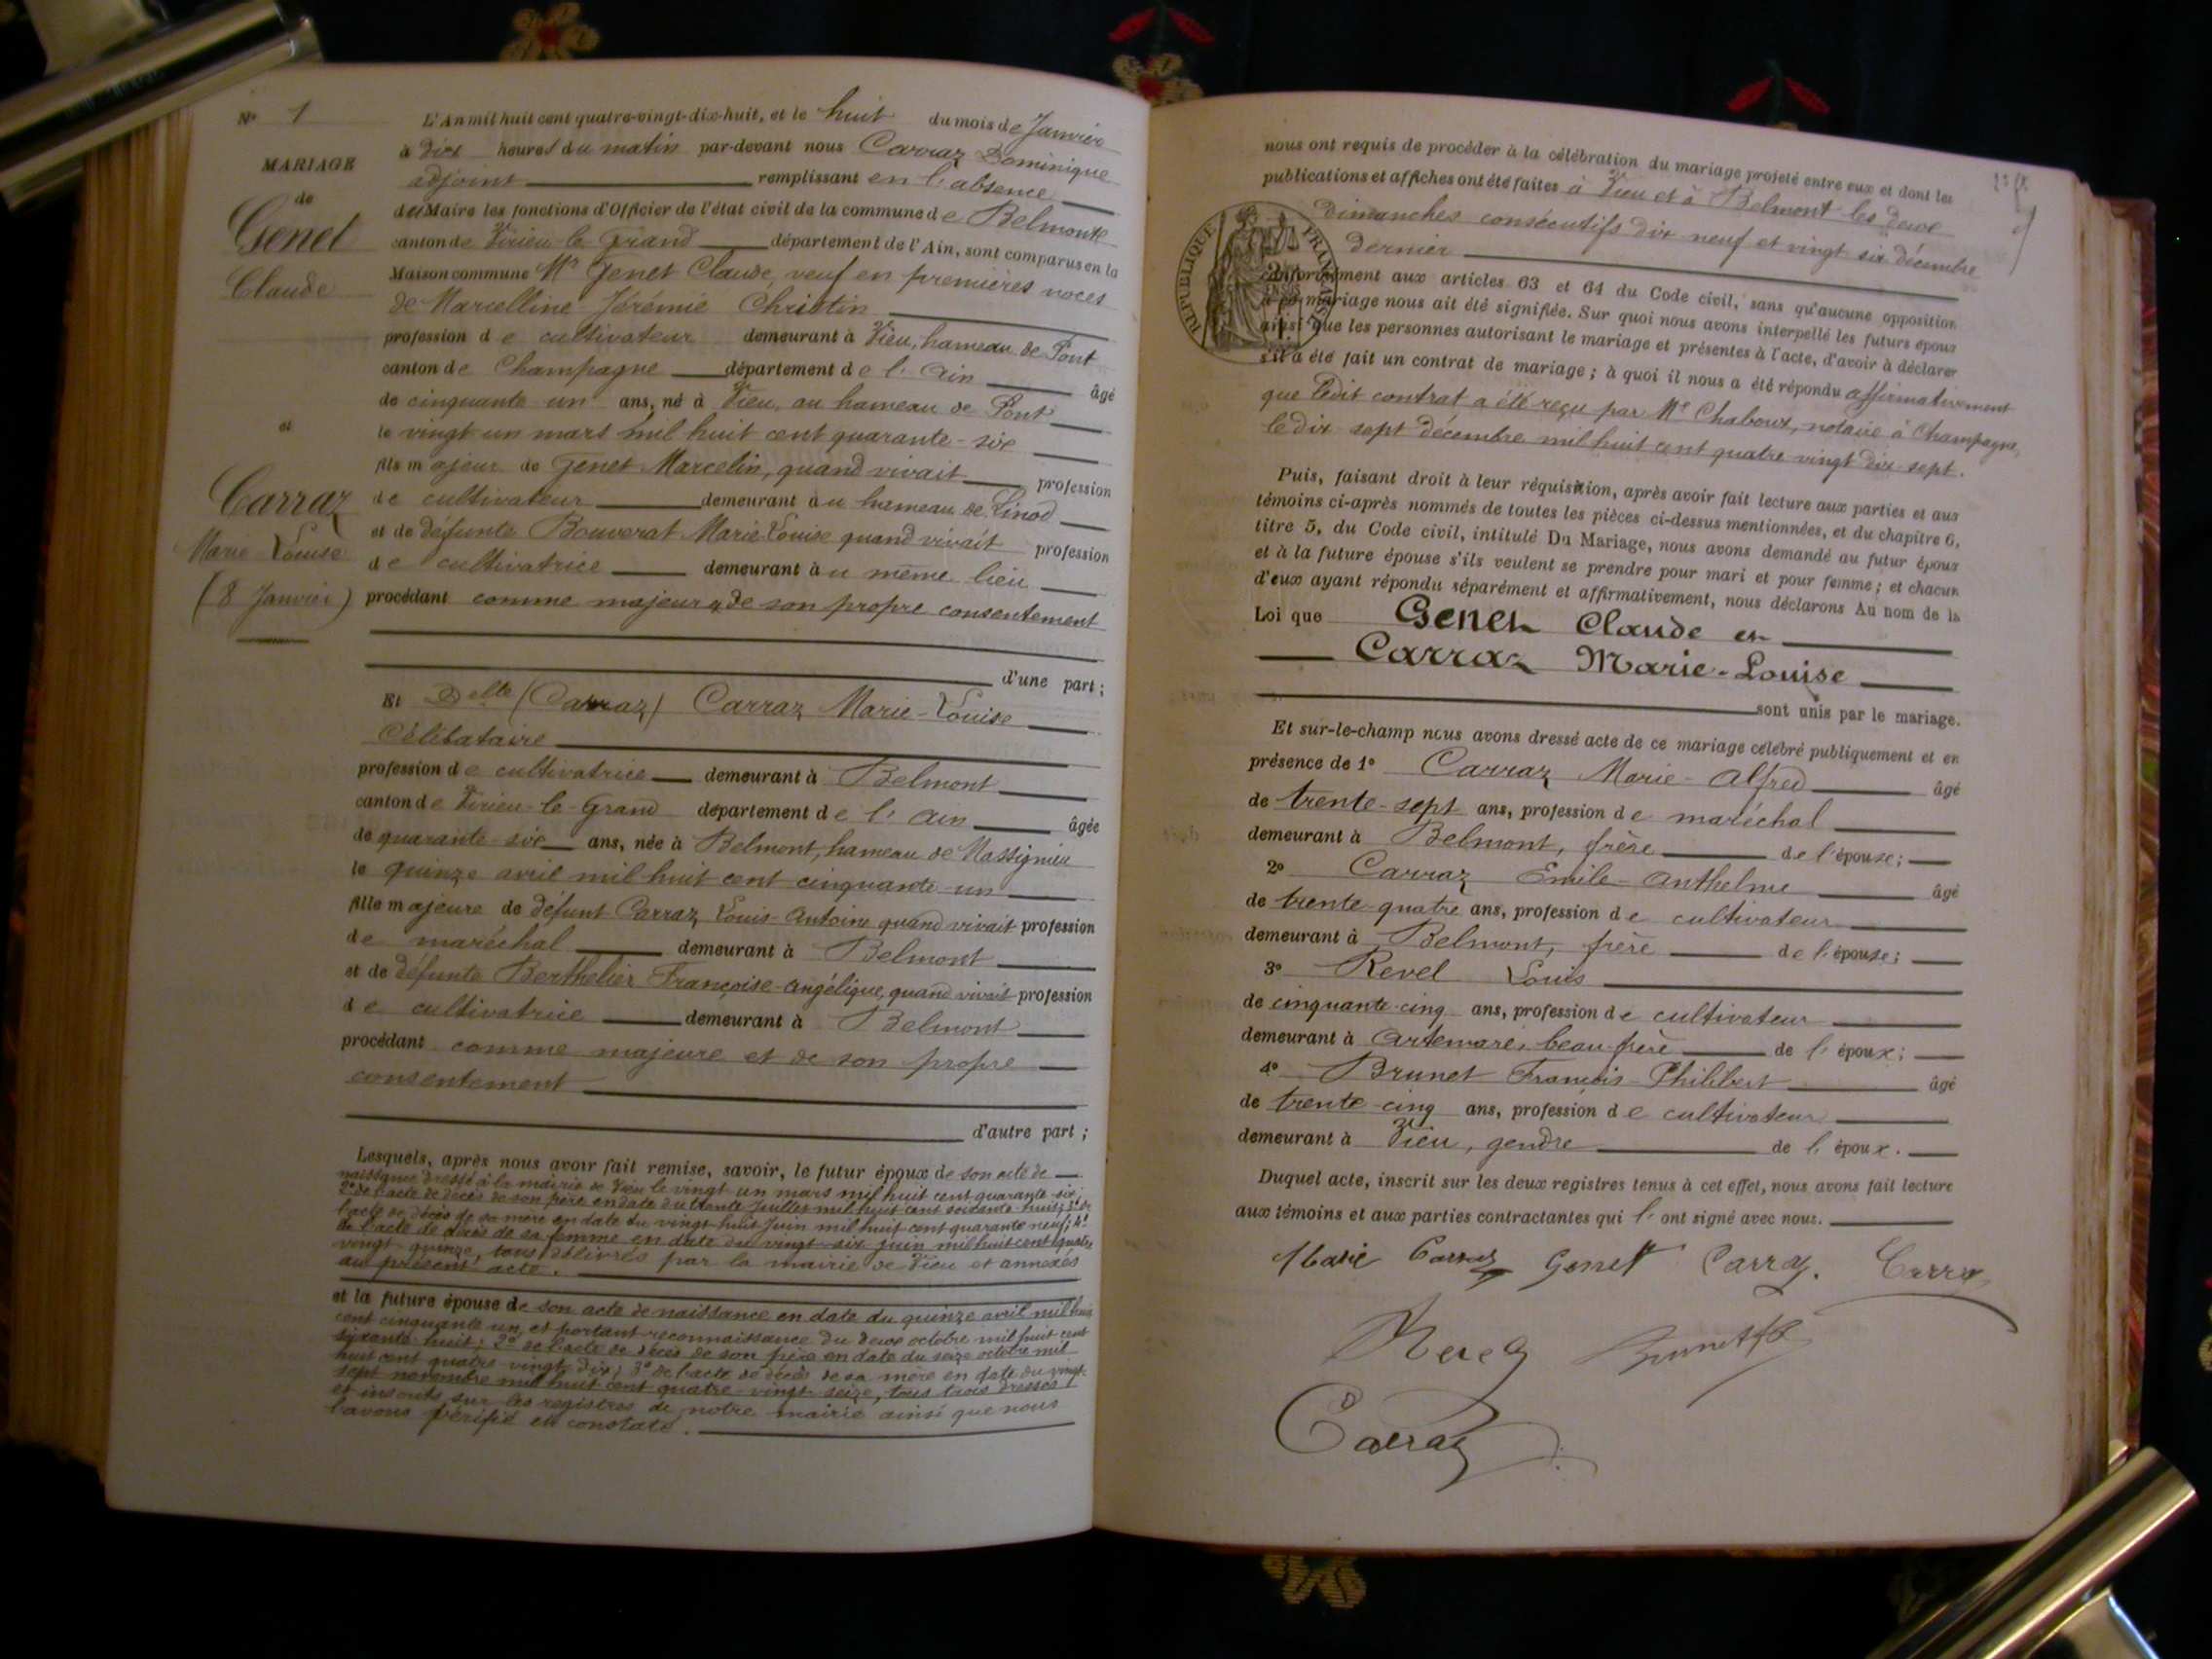 N° 1
MARIAGE
de
Genet
Claude
et
Carraz
Marie Louise
(8 Janvier)
L'An mil huit cent quatre-vingt-dix-huit, et le huit du mois de Janvier
à dix heures du matin par-devant nous Carraz Dominique
adjoint remplissant en l'absence
du Maire les fonctions d'Officier de l'état civil de la commune de Belmont
canton de Virieu le Grand département de l'Ain, sont comparus en la
Maison commune Mr Genet Claude, veuf en premières noces
de Marcelline Jérémie Christin
profession de cultivateur demeurant à Vieu, hameau de Pont
canton de Champagne département de l'Ain âgé
de cinquante un ans, né à Vieu, au hameau de Pont
le vingt un mars mil huit cent quarante-six
fils majeur de Genet Marcelin, quand vivait profession
de cultivateur demeurant au hameau de Linod
et de défunte Bouverat Marie Louise quand vivait profession
de cultivatrice demeurant au même lieu
procédant comme majeur & de son propre consentement
d'une part ;
Et Delle (Carraz) Carraz Marie-Louise
Célibataire
profession de cultivatrice demeurant à Belmont
canton de Virieu-le-Grand département de l'Ain âgée
de quarante-six ans, née à Belmont, hameau de Massignieu
le quinze avril mil huit cent cinquante-un
fille majeure de défunt Carraz Louis-Antoine quand vivait profession
de maréchal demeurant à Belmont
et de défunte Berthelier Françoise-Angélique, quand vivait profession
de cultivatrice demeurant à Belmont
procédant comme majeure et de son propre
consentement
d'autre part ;
Lesquels, après nous avoir fait remise, savoir, le futur époux de son acte de
naissance dressé à la mairie de Vieu le vingt un mars mil huit cent quarante-six;
2° de l'acte de décès de son père en date du trente Juillet mil huit cent soixante-huit; 3° de
l'acte de décès de sa mère en date du vingt huit Juin mil huit cent quarante neuf; 4°
de l'acte de décès de sa femme en date du vingt-six juin mil huit cent quatre
vingt-quinze, tous délivrés par la mairie de Vieu et annexés
au présent acte.
et la future épouse de son acte de naissance en date du quinze avril mil huit
cent cinquante un, et portant reconnaissance du deux octobre mil huit cent
soixante-huit; 2° de l'acte de décès de son père en date du seize octobre mil
huit cent quatre vingt dix; 3° de l'acte de décès de sa mère en date du vingt-
sept novembre mil huit cent quatre-vingt-seize, tous trois dressés
et inscrits sur les registres de notre mairie ainsi que nous
l'avons vérifié et constaté.
nous ont requis de procéder à la célébration du mariage projeté entre eux et dont les
publications et affiches ont été faites à Vieu et à Belmont les deux
dimanches consécutifs dix neuf et vingt six décembre
dernier
RÉPUBLIQUE FRANÇAISE
conformément aux articles 63 et 64 du Code civil, sans qu'aucune opposition
à ce mariage nous ait été signifiée. Sur quoi nous avons interpellé les futurs époux
ainsi que les personnes autorisant le mariage et présentes à l'acte, d'avoir à déclarer
s'il a été fait un contrat de mariage ; à quoi il nous a été répondu affirmativement
que ledit contrat a été reçu par Me Chaboux, notaire à Champagne,
le dix-sept décembre mil huit cent quatre vingt dix-sept.
Puis, faisant droit à leur réquisition, après avoir fait lecture aux parties et aux
témoins ci-après nommés de toutes les pièces ci-dessus mentionnées, et du chapitre 6,
titre 5, du Code civil, intitulé Du Mariage, nous avons demandé au futur époux
et à la future épouse s'ils veulent se prendre pour mari et pour femme ; et chacun
d'eux ayant répondu séparément et affirmativement, nous déclarons Au nom de la
Loi que Genet Claude et
Carraz Marie-Louise
sont unis par le mariage.
Et sur-le-champ nous avons dressé acte de ce mariage célébré publiquement et en
présence de 1° Carraz Marie-Alfred âgé
de trente-sept ans, profession de maréchal
demeurant à Belmont, frère de l'épouse;
2° Carraz Emile-Anthelme âgé
de trente-quatre ans, profession de cultivateur
demeurant à Belmont, frère de l'épouse;
3° Revel Louis
de cinquante-cinq ans, profession de cultivateur
demeurant à Artemare, beau-frère de l'époux;
4° Brunet François-Philibert âgé
de trente-cinq ans, profession de cultivateur
demeurant à Vieu, gendre de l'époux.
Duquel acte, inscrit sur les deux registres tenus à cet effet, nous avons fait lecture
aux témoins et aux parties contractantes qui l'ont signé avec nous.
Marie Carraz Genet Carraz. Carraz
Revel Brunet
Carraz